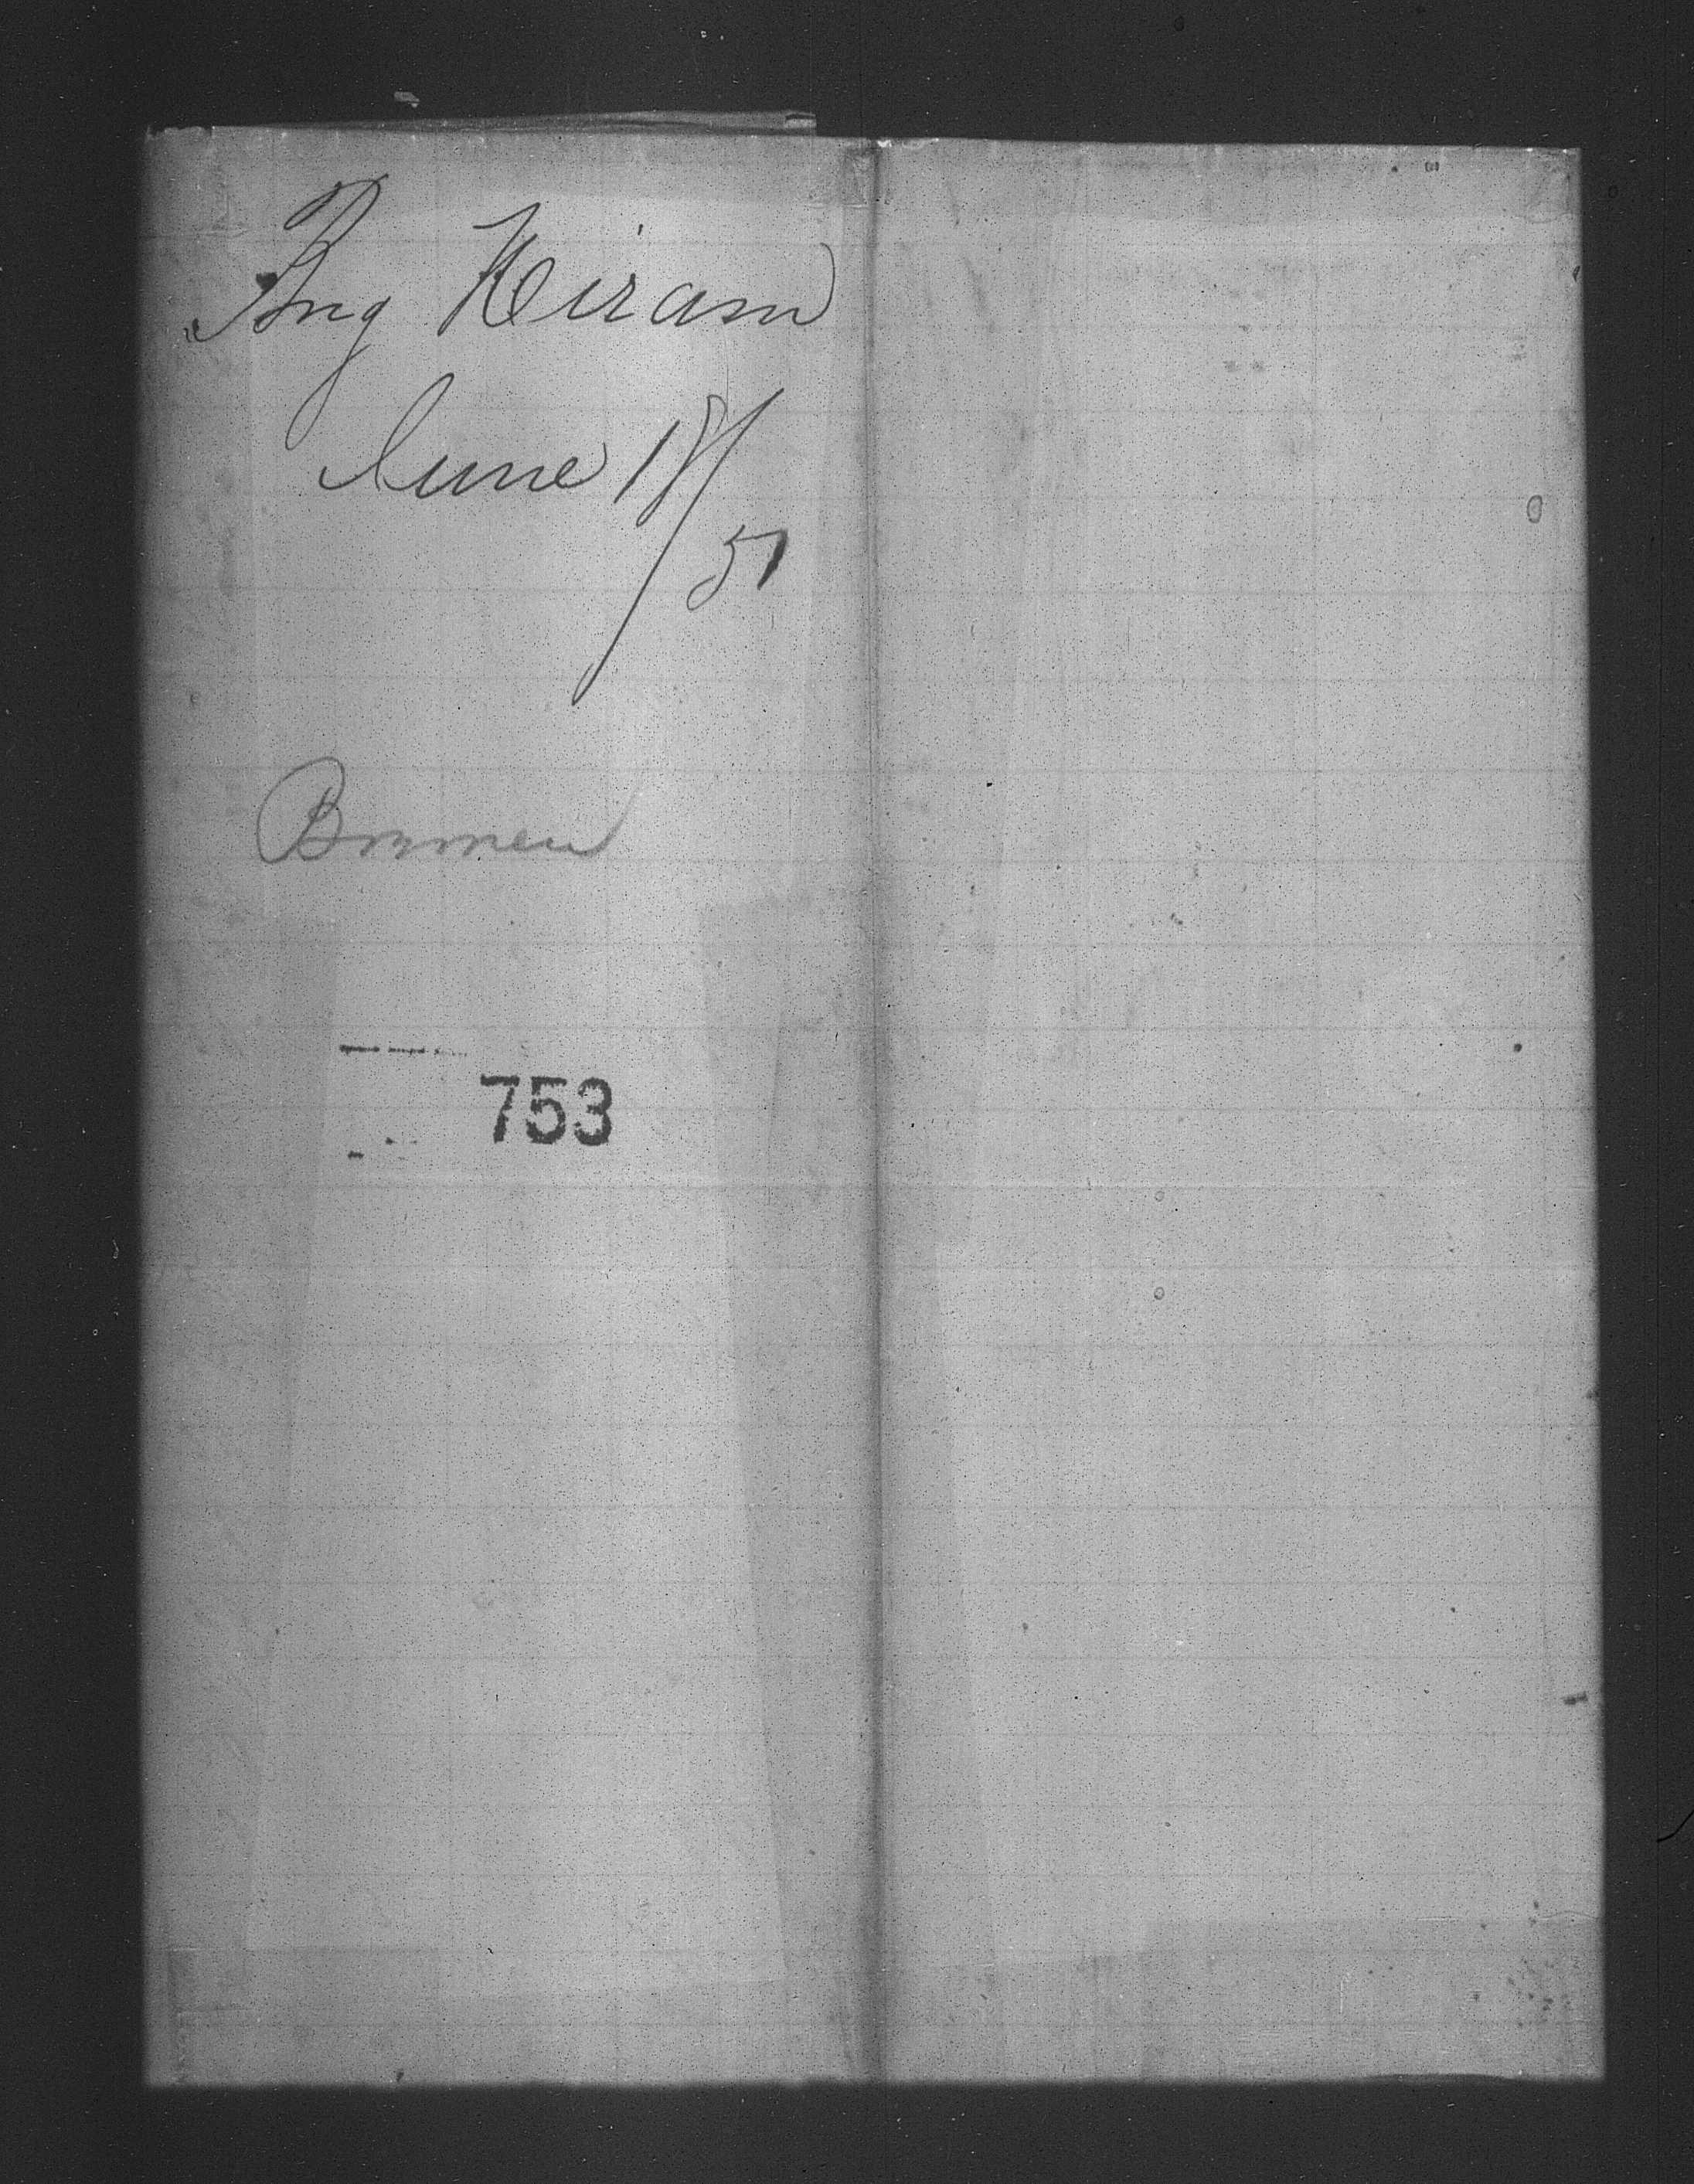 Brig Heiram
June 18/51
Bremen
753